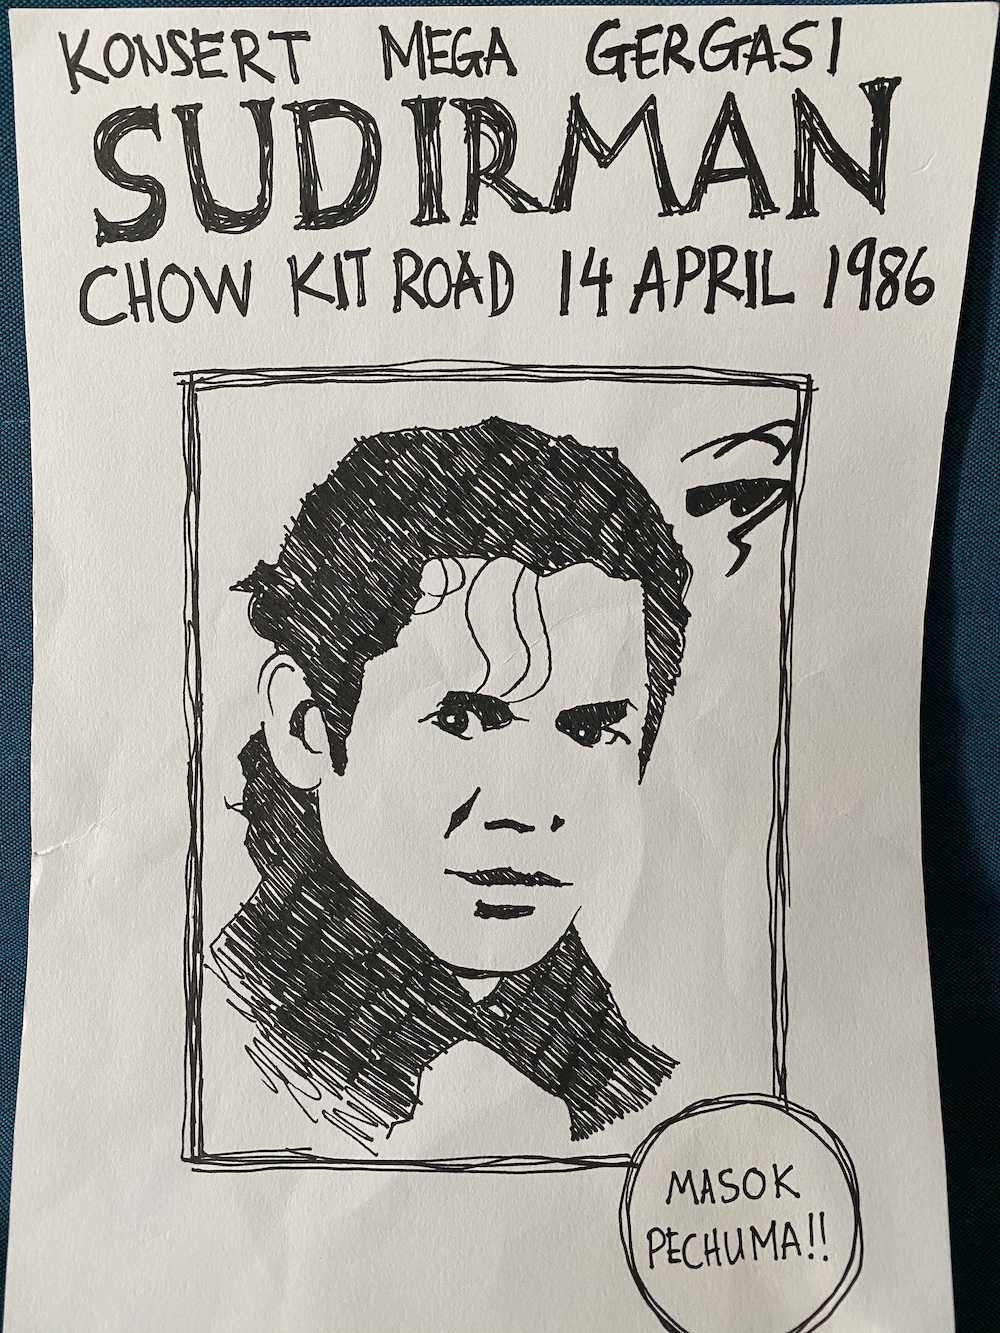 KONSERT MEGA GERGASI
SUDIRMAN
CHOW KIT ROAD 14 APRIL 1986
MASOK
PECHUMA!!